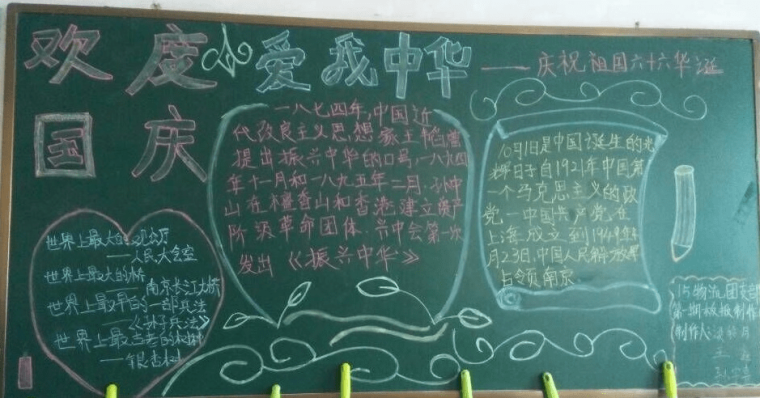 欢度国庆
爱我中华
——庆祝祖国六十六华诞
一八七四年,中国近
代改良主义思想家王韬曾
提出振兴中华的口号,一八九四
年十一月和一八九五年二月,孙中
山在檀香山和香港建立资产
阶级革命团体.兴中会第一次
发出《振兴中华》
10月1日是中国诞生的光
辉日子自1921年中国第
一个马克思主义的政
党—中国共产党在
上海成立到1949年4
月23日,中国人民解放军
占领南京.
世界上最大的
——人民大会堂
世界上最大的桥
南京长江大桥
世界上最早的一部兵法
——《孙子兵法》
世界上最古老的树种
——银杏树
15物流团支部
第一期板报制作
制作人